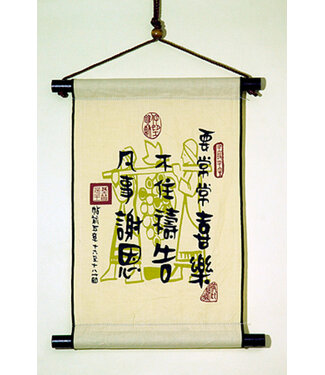 要常常喜樂
不住禱告
凡事謝恩